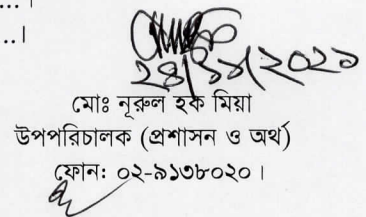 ... ।
..।
২৪/১১/২০২১
মোঃ নূরুল হক মিয়া
উপপরিচালক (প্রশাসন ও অর্থ)
ফোন: ০২-৯১৩৮০২০।